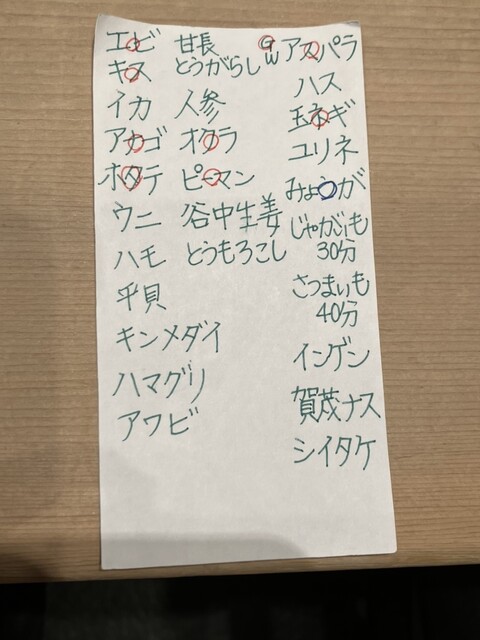 エビ
キス
イカ
アカゴ
ホタテ
ウニ
ハモ
平貝
キンメダイ
ハマグリ
アワビ
甘長
とうがらし
人参
オクラ
ピーマン
谷中生姜
とうもろこし
GW アスパラ
ハス
玉ネギ
ユリネ
みょうが
じゃがいも
30分
さつまいも
40分
インゲン
賀茂ナス
シイタケ